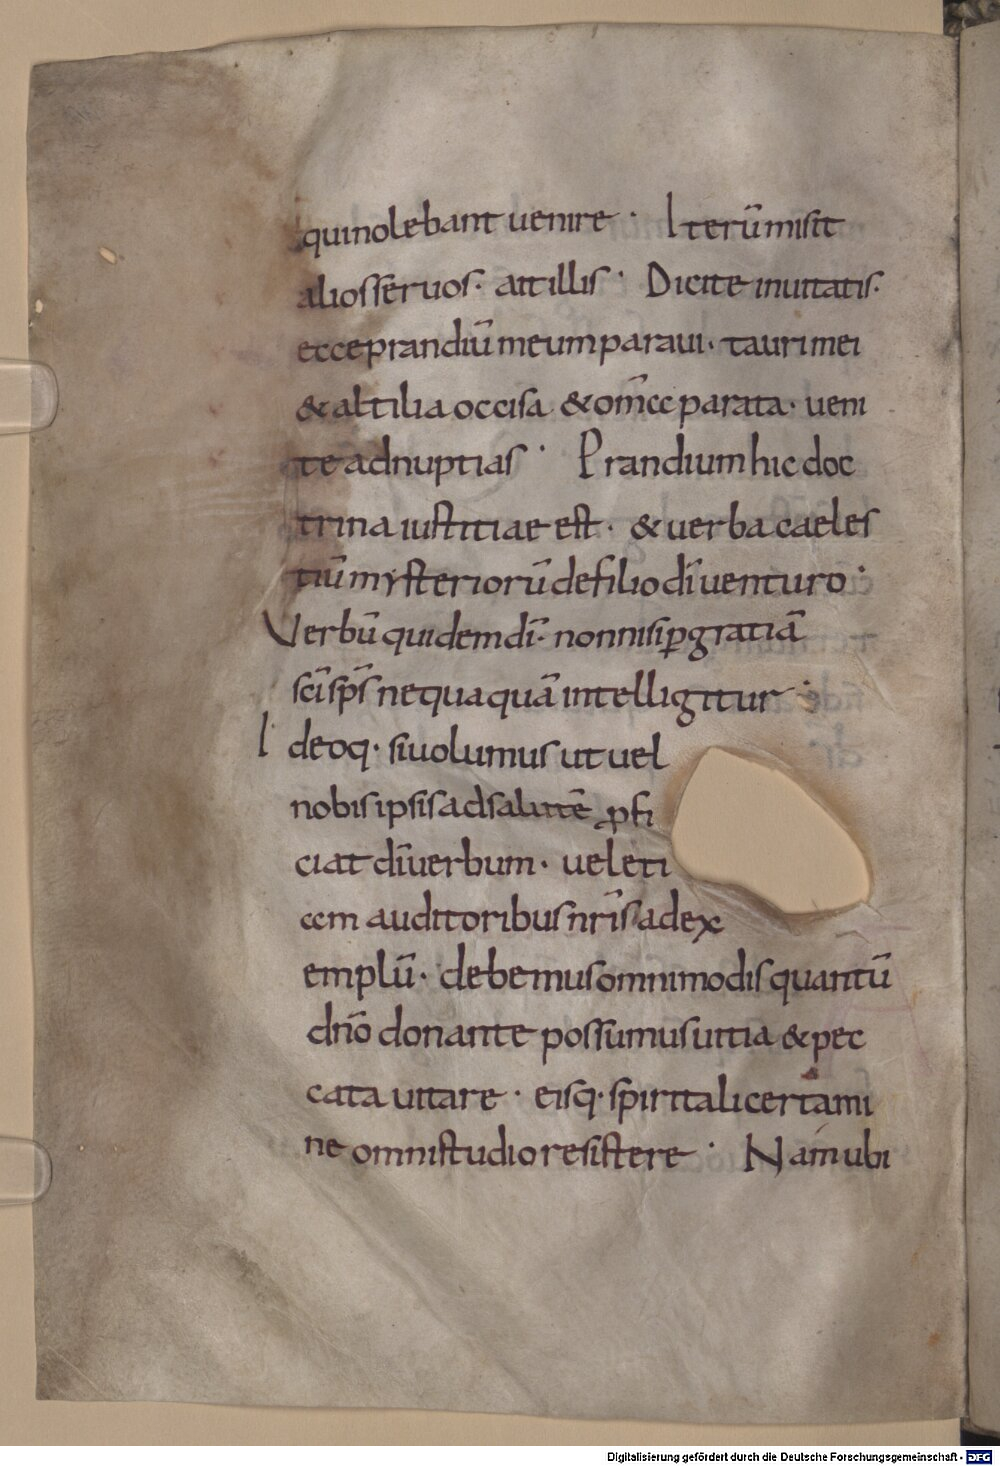 quinolebant uenire · Iterū misit
alios seruos · ait illis · Dicite inuitatis ·
ecce prandiū meum paraui · tauri mei
& altilia occisa & om̄ia parata · ueni
te ad nuptias · Prandium hic doc
trina iustitiae est · & uerba caeles
tiū mysteriorū de filio dī uenturo ·
Verbū quidem dī · non nisi ꝑ gratiā
sc̄i sp̄s nequaquā intelligitur ·
Ideoq · si uolumus ut uel
nobis ipsis ad salutē ꝓfi
ciat dī uerbum · uel eti
am auditoribus nr̄is ad ex
emplū · debemus omnimodis quantū
dn̄o donante possumus uitia & pec
cata uitare · eisq · spiritali certami
ne omni studio resistere · Nam ubi
Digitalisierung gefördert durch die Deutsche Forschungsgemeinschaft - DFG